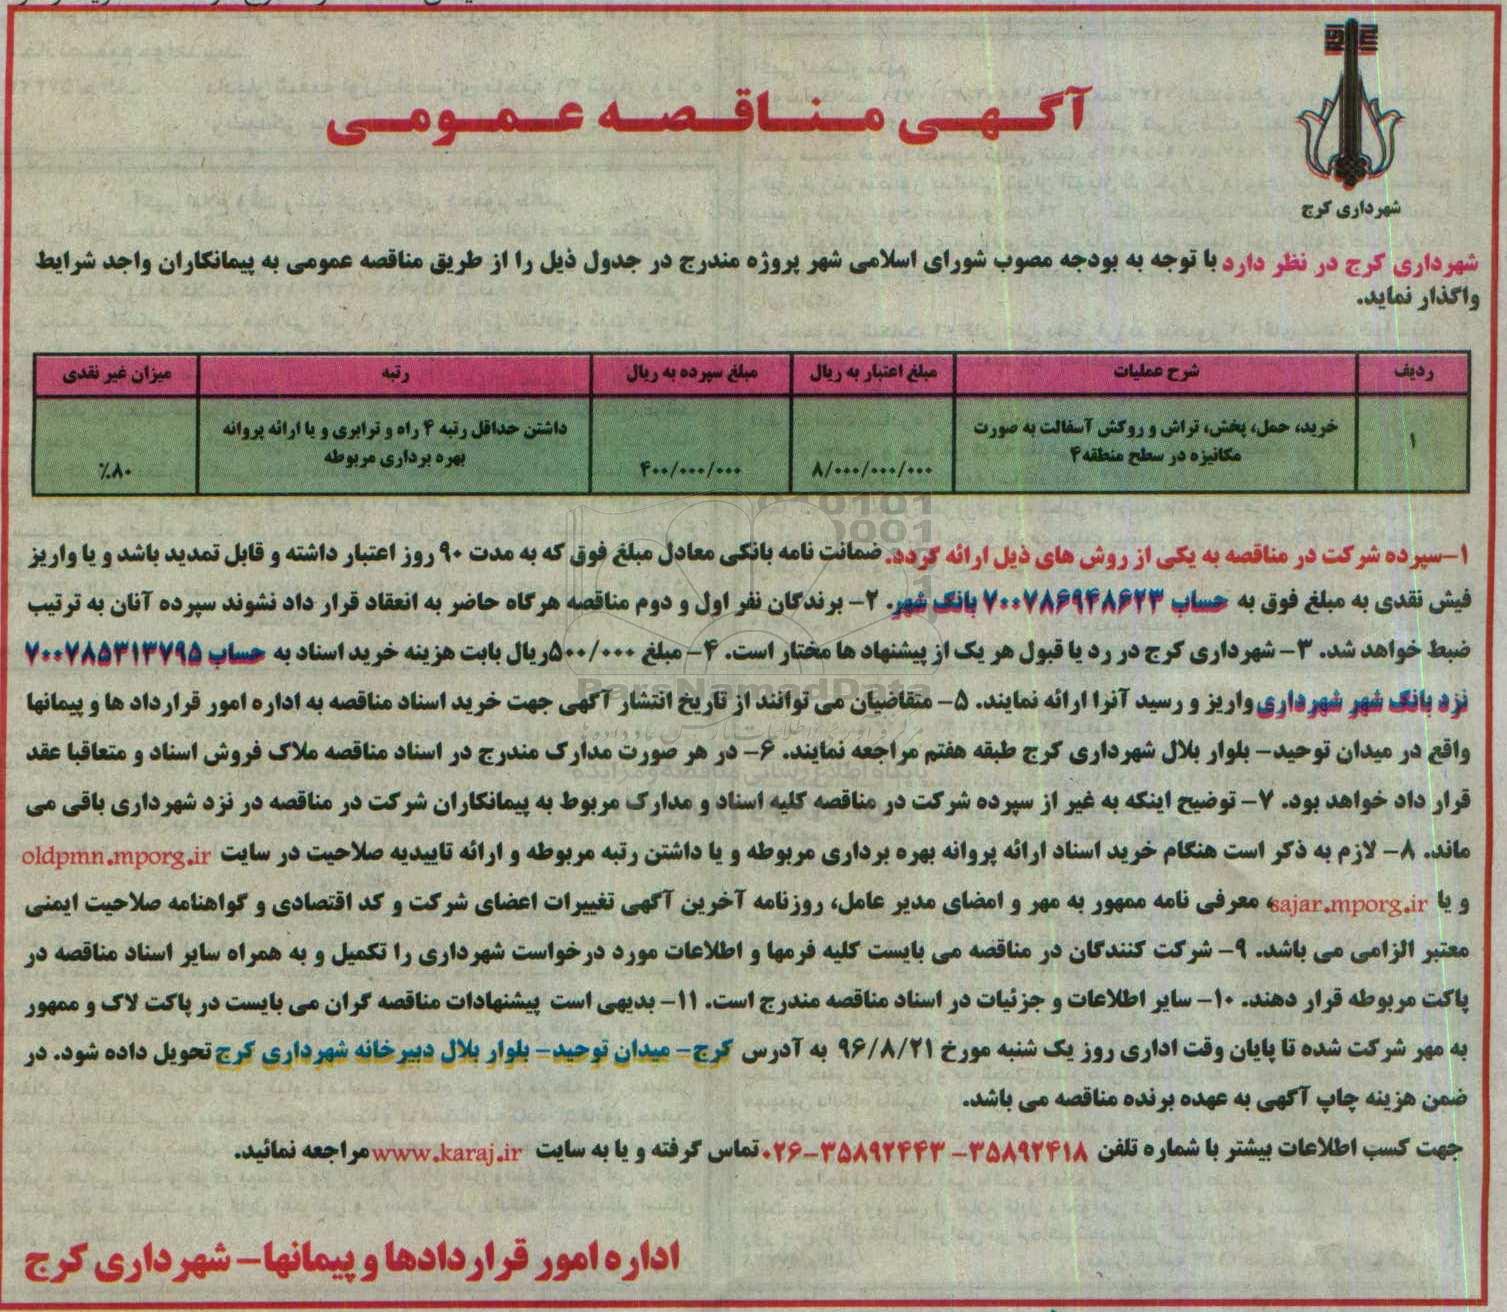 شهرداری کرج
آگهی مناقصه عمومی
شهرداری کرج در نظر دارد با توجه به بودجه مصوب شورای اسلامی شهر پروژه مندرج در جدول ذیل را از طریق مناقصه عمومی به پیمانکاران واجد شرایط
واگذار نماید.
ردیف شرح عملیات مبلغ اعتبار به ریال مبلغ سپرده به ریال رتبه میزان غیر نقدی
۱ خرید، حمل، پخش، تراش و روکش آسفالت به صورت مکانیزه در سطح منطقه ۴ ۸/۰۰۰/۰۰۰/۰۰۰ ۴۰۰/۰۰۰/۰۰۰ داشتن حداقل رتبه ۴ راه و ترابری و یا ارائه پروانه بهره برداری مربوطه ۸۰٪
۱-سپرده شرکت در مناقصه به یکی از روش های ذیل ارائه گردد. ضمانت نامه بانکی معادل مبلغ فوق که به مدت ۹۰ روز اعتبار داشته و قابل تمدید باشد و یا واریز
فیش نقدی به مبلغ فوق به حساب ۷۰۰۷۸۶۹۴۸۶۲۳ بانک شهر. ۲- برندگان نفر اول و دوم مناقصه هرگاه حاضر به انعقاد قرار داد نشوند سپرده آنان به ترتیب
ضبط خواهد شد. ۳- شهرداری کرج در رد یا قبول هر یک از پیشنهاد ها مختار است. ۴- مبلغ ۵۰۰/۰۰۰ریال بابت هزینه خرید اسناد به حساب ۷۰۰۷۸۵۳۱۳۷۹۵
نزد بانک شهر شهرداری واریز و رسید آنرا ارائه نمایند. ۵- متقاضیان می توانند از تاریخ انتشار آگهی جهت خرید اسناد مناقصه به اداره امور قرارداد ها و پیمانها
واقع در میدان توحید- بلوار بلال شهرداری کرج طبقه هفتم مراجعه نمایند. ۶- در هر صورت مدارک مندرج در اسناد مناقصه ملاک فروش اسناد و متعاقبا عقد
قرار داد خواهد بود. ۷- توضیح اینکه به غیر از سپرده شرکت در مناقصه کلیه اسناد و مدارک مربوط به پیمانکاران شرکت در مناقصه در نزد شهرداری باقی می
ماند. ۸- لازم به ذکر است هنگام خرید اسناد ارائه پروانه بهره برداری مربوطه و یا داشتن رتبه مربوطه و ارائه تاییدیه صلاحیت در سایت oldpmn.mporg.ir
و یا sajar.mporg.ir، معرفی نامه ممهور به مهر و امضای مدیر عامل، روزنامه آخرین آگهی تغییرات اعضای شرکت و کد اقتصادی و گواهنامه صلاحیت ایمنی
معتبر الزامی می باشد. ۹- شرکت کنندگان در مناقصه می بایست کلیه فرمها و اطلاعات مورد درخواست شهرداری را تکمیل و به همراه سایر اسناد مناقصه در
پاکت مربوطه قرار دهند. ۱۰- سایر اطلاعات و جزئیات در اسناد مناقصه مندرج است. ۱۱- بدیهی است پیشنهادات مناقصه گران می بایست در پاکت لاک و ممهور
به مهر شرکت شده تا پایان وقت اداری روز یک شنبه مورخ ۹۶/۸/۲۱ به آدرس کرج- میدان توحید- بلوار بلال دبیرخانه شهرداری کرج تحویل داده شود. در
ضمن هزینه چاپ آگهی به عهده برنده مناقصه می باشد.
جهت کسب اطلاعات بیشتر با شماره تلفن ۳۵۸۹۲۴۱۸- ۳۵۸۹۲۴۴۳-۰۲۶ تماس گرفته و یا به سایت www.karaj.ir مراجعه نمائید.
اداره امور قراردادها و پیمانها- شهرداری کرج
ParsNamadData